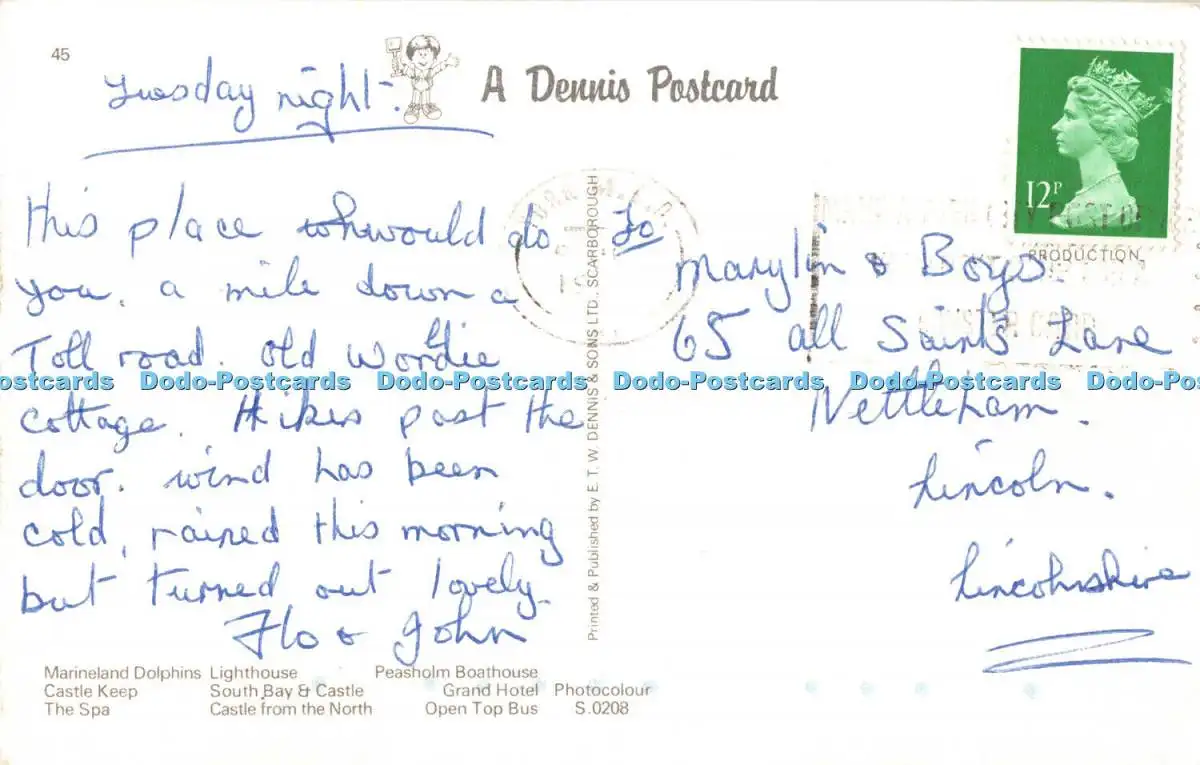 45
Tuesday night.
A Dennis Postcard
12P
This place would do
you. a mile down a
Toll road. old Wordie
cottage. Hikers past the
door. wind has been
cold, rained this morning
but turned out lovely.
Flo & John
To
Marylin & Boys.
65 all Saints Lane
Nettleham.
Lincoln.
Lincolnshire
PRODUCTION
Printed & Published by E. T. W. DENNIS & SONS LTD., SCARBOROUGH
Dodo-Postcards Dodo-Postcards Dodo-Postcards Dodo-Postcards Dodo-Postcards
Marineland Dolphins Lighthouse Peasholm Boathouse
Castle Keep South Bay & Castle Grand Hotel Photocolour
The Spa Castle from the North Open Top Bus S.0208